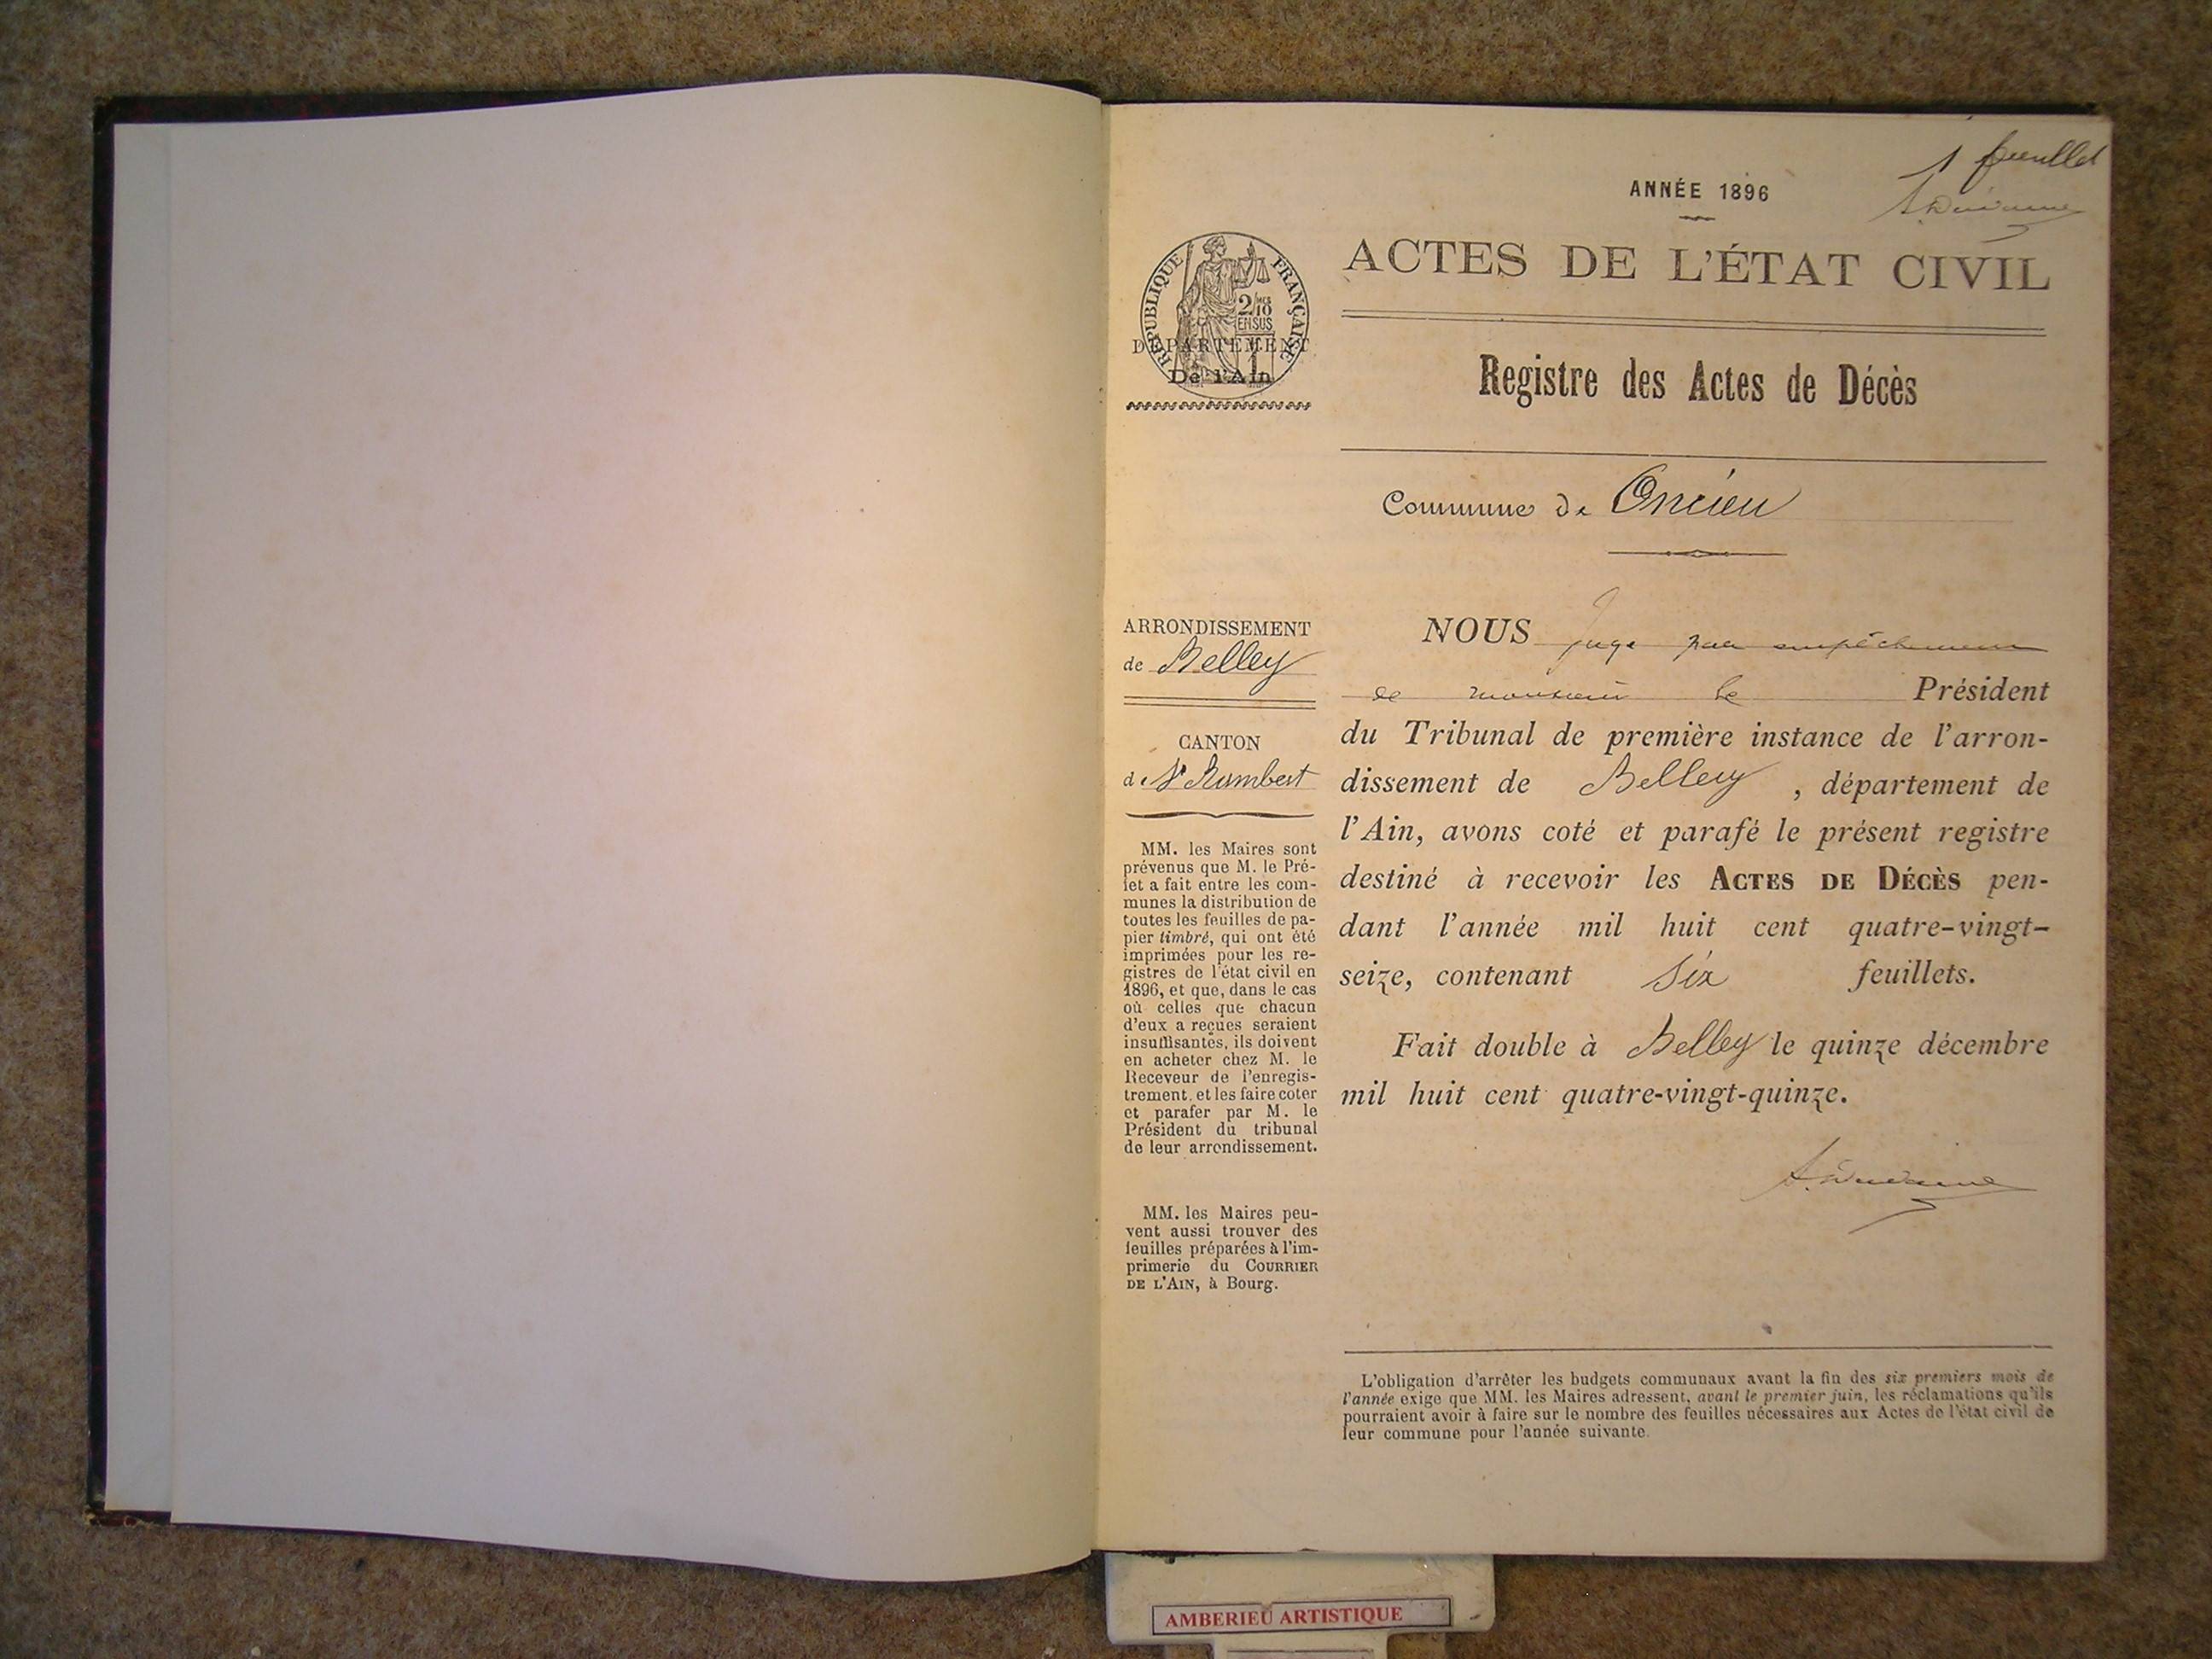 1 feuillet
ANNÉE 1896
ACTES DE L'ÉTAT CIVIL
RÉPUBLIQUE FRANÇAISE
2/10
EN SUS
DÉPARTEMENT
De l'Ain
Registre des Actes de Décès
Commune de Oncieu
ARRONDISSEMENT
de Belley
CANTON
de St Rambert
MM. les Maires sont
prévenus que M. le Pré-
fet a fait entre les com-
munes la distribution de
toutes les feuilles de pa-
pier timbré, qui ont été
imprimées pour les re-
gistres de l'état civil en
1896, et que, dans le cas
où celles que chacun
d'eux a reçues seraient
insuffisantes, ils doivent
en acheter chez M. le
Receveur de l'enregis-
trement, et les faire coter
et parafer par M. le
Président du tribunal
de leur arrondissement.
MM. les Maires peu-
vent aussi trouver des
feuilles préparées à l'im-
primerie du COURRIER
DE L'AIN, à Bourg.
NOUS juge par empêchement
de monsieur le Président
du Tribunal de première instance de l'arron-
dissement de Belley, département de
l'Ain, avons coté et parafé le présent registre
destiné à recevoir les ACTES DE DÉCÈS pen-
dant l'année mil huit cent quatre-vingt-
seize, contenant Six feuillets.
Fait double à Belley le quinze décembre
mil huit cent quatre-vingt-quinze.
L'obligation d'arrêter les budgets communaux avant la fin des six premiers mois de
l'année exige que MM. les Maires adressent, avant le premier juin, les réclamations qu'ils
pourraient avoir à faire sur le nombre des feuilles nécessaires aux Actes de l'état civil de
leur commune pour l'année suivante.
AMBERIEU ARTISTIQUE